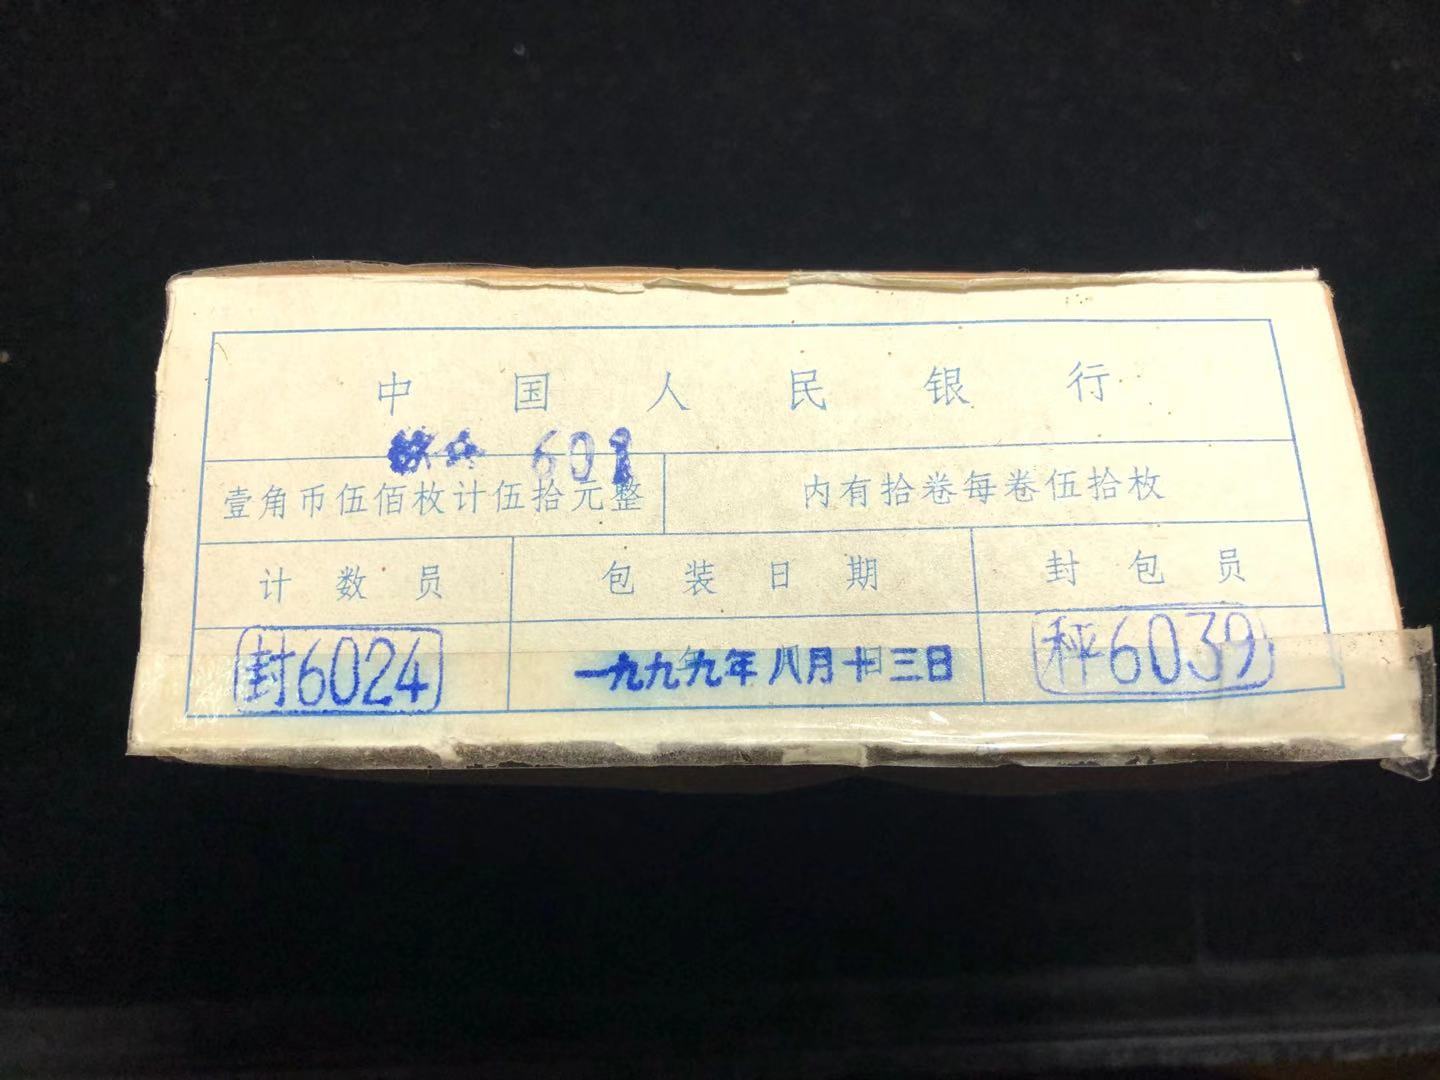 中国人民银行
601
壹角币伍佰枚计伍拾元整 内有拾卷每卷伍拾枚
计数员 包装日期 封包员
封6024 一九九九年八月十三日 秤6039